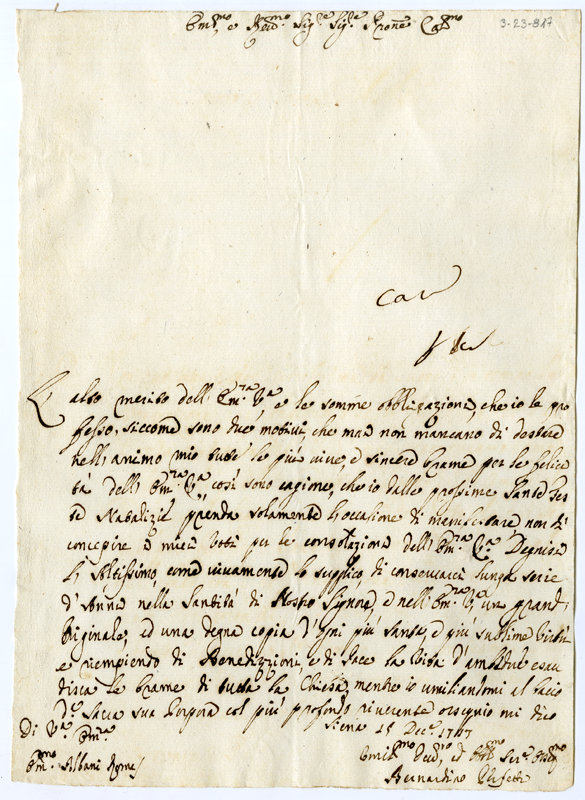 Em.mo e Rev.mo Sig.re Sig.re Prone Col.mo
3-23-817
L'alto merito dell'Em.za V.a e le somme obbligazioni, che io le pro
fesso, siccome sono due motivi, che mai non mancano di destare
nell'animo mio tutte le più vive, e sincere brame per le felici
tà dell'Em.za V.a, così sono cagione, che io dalle prossime Sante Fes
te Natalizie prenda solamente l'occasione di manifestare non di
concepire i miei voti per le consolazioni dell'Em.za V.a Degnisi
l'Altissimo, come vivamente lo supplico, di conservarci lunga serie
d'Anni nella Santità di Nostro Signore, e nell'Em.za V.a un grand'
Originale, ed una degna copia d'ogni più santa, e più sublime virtù
e riempiendo di Benedizzioni, e di Pace la Vita d'amendue esau
disca le brame di tutta la Chiesa, mentre io umiliandomi al bacio
della Sacra sua Porpora col più profondo riverente ossequio mi dico
Di V.a Em.za
Siena 15 Dec.e 1717
Em.mo Albani Roma
Umil.mo Dev.mo ed Obb.mo Ser.e Osseq.mo
Bernardino